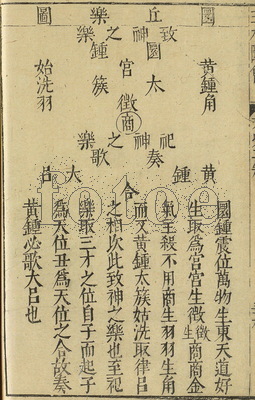 圜丘樂圖
致神之樂
圜鍾宮
黃鍾角
太簇徵
姑洗羽
商
祀神之樂
奏黃鍾
歌大呂
合
圜鍾震位萬物生東天道好
生取爲宮宮生徵徵生商商金
氣主殺不用商生羽羽生角
而又黃鍾太族姑洗取律呂
之相次此致神之樂也至祀
樂取三才之位自子而起子
爲天位丑爲天位之合故奏
黃鍾必歌大呂也
totoe